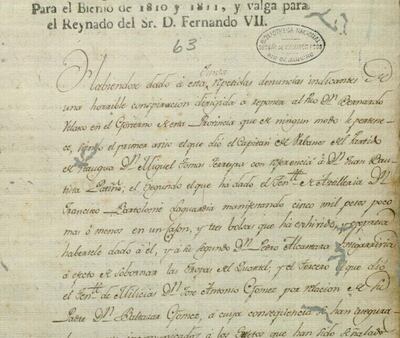 Para el Bienio de 1810 y 1811, y valga para
el Reynado del Sr. D. Fernando VII.
63
BIBLIOTHECA NACIONAL
RIO DE JANEIRO
Junta
Habiendose dado á esta repetidas denuncias indicantes de
una horrible conspiracion dirigida a reponer al Sor Dn. Bernardo
Velasco en el Govierno de esta Provincia que de ningun modo le pertene-
ce, siendo el primer aviso el que dió el Capitan de Urbanos del Partido
de Dn. Miguel Tomas Ferreyra con referencia á Dn. Juan Bau-
tista el segundo el que ha dado el Tente. de Artilleria Dn.
Francisco Bartolomé Laguardia manifestando cinco mil pesos poco
mas ó menos en un cajon, y tres bolsas que ha exhibido, y expresa
haberle dado á él, y á su segundo Dn. Pedro Alcantara
á efecto de sobornar las tropas del Quartel, y el tercero el que dió
el Tente. de Milicias Dn. José Antonio Gomez por relacion de su
Padre Dn. Baltazar Gomez, a cuya conseqüencia se han asegura-
á los Reos que han sido